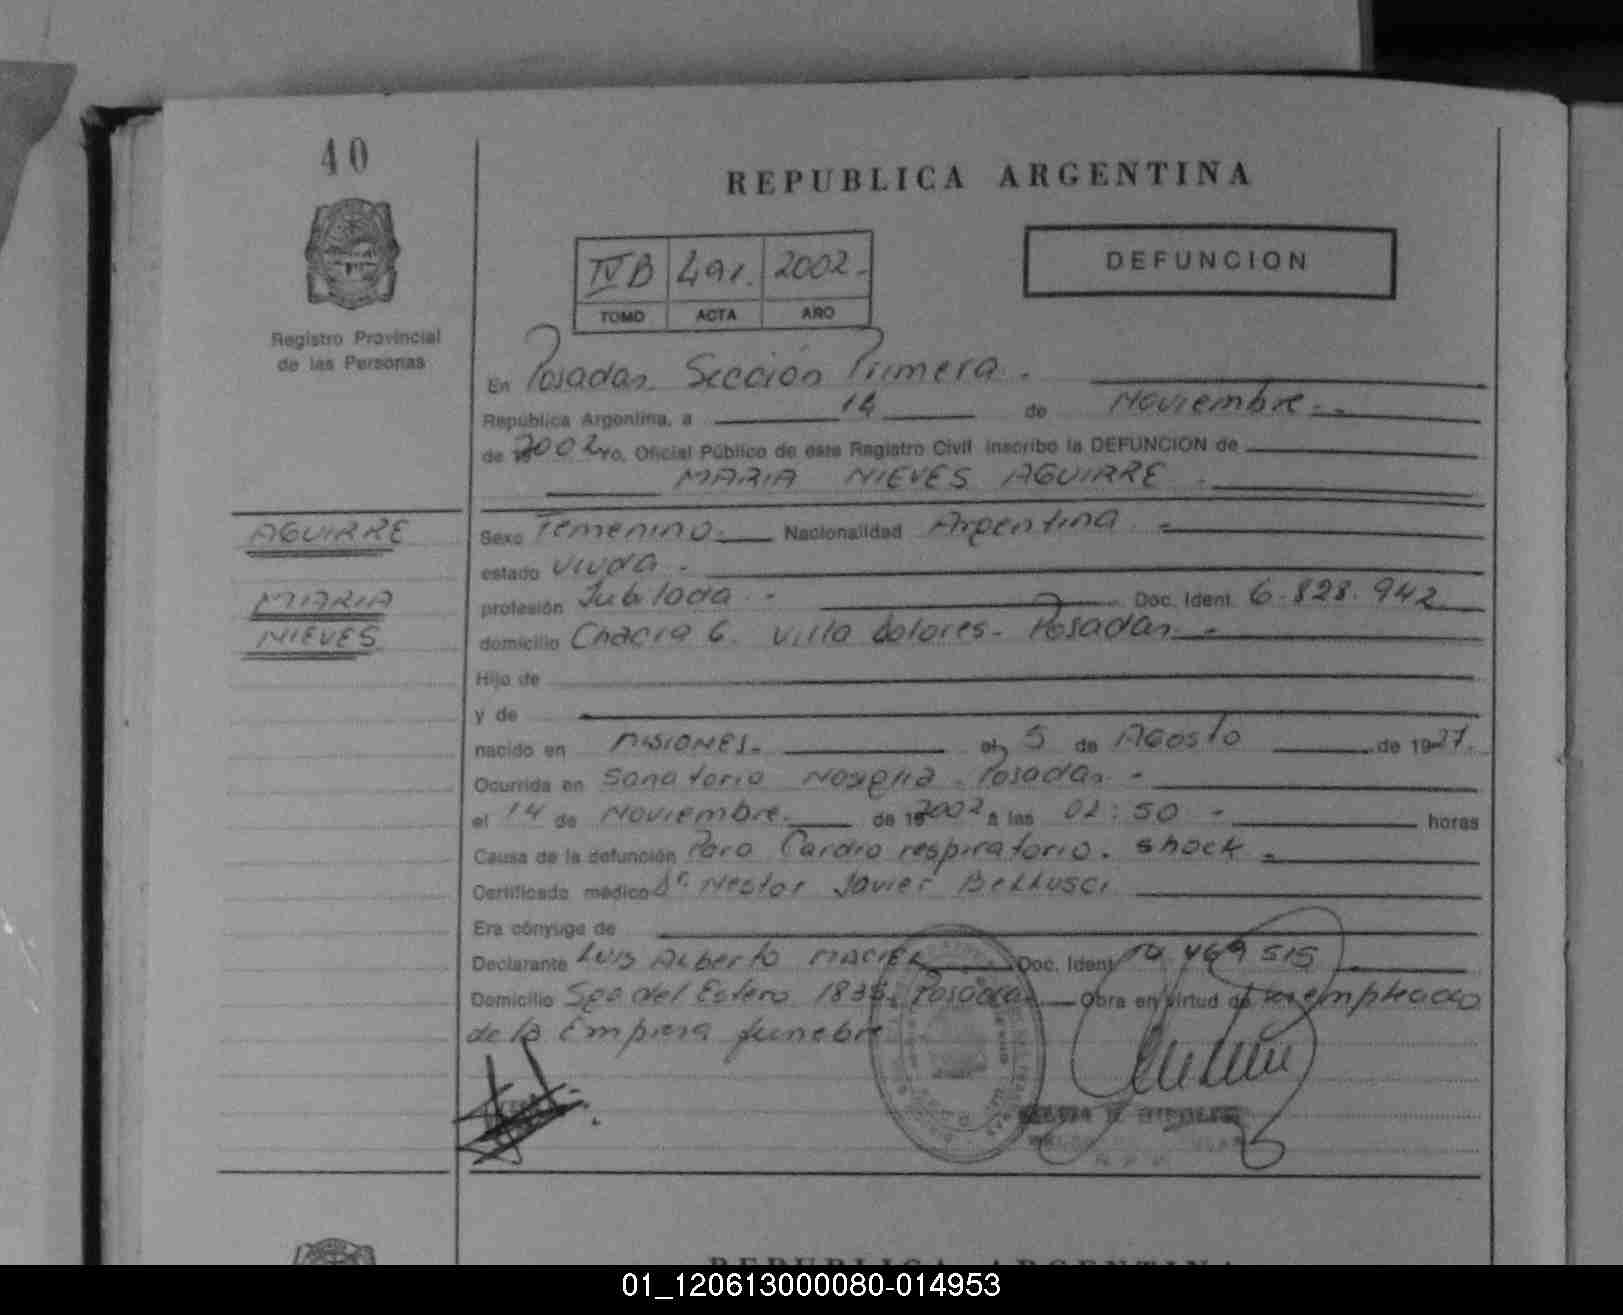 40
REPUBLICA ARGENTINA
IV B 491. 2002.-
TOMO ACTA AÑO
DEFUNCION
Registro Provincial
de las Personas
En Posadas Sección Primera.
República Argentina, a 14 de Noviembre.-
de 19 2002 Yo, Oficial Público de este Registro Civil inscribo la DEFUNCION de
MARIA NIEVES AGUIRRE.
AGUIRRE
MARIA
NIEVES
Sexo Femenino. Nacionalidad Argentina.-
estado viuda.
profesión Jubilada.- Doc. Ident. 6.828.942
domicilio Chacra 6. Villa Dolores. Posadas.-
Hijo de
y de
nacido en Misiones.- el 5 de Agosto de 1927.
Ocurrida en Sanatorio Nosiglia. Posadas.-
el 14 de Noviembre. de 19 2002 a las 02:50.- horas
Causa de la defunción Paro Cardio respiratorio. Shock.-
Certificado médico Dr. Nestor Javier Bellusci
Era cónyuge de
Declarante Luis Alberto Maciel Doc. Ident. 469 515
Domicilio Sgo del Estero 1835. Posadas. Obra en virtud de ser empleado
de la Empresa funebre
REPUBLICA ARGENTINA
01_120613000080-014953